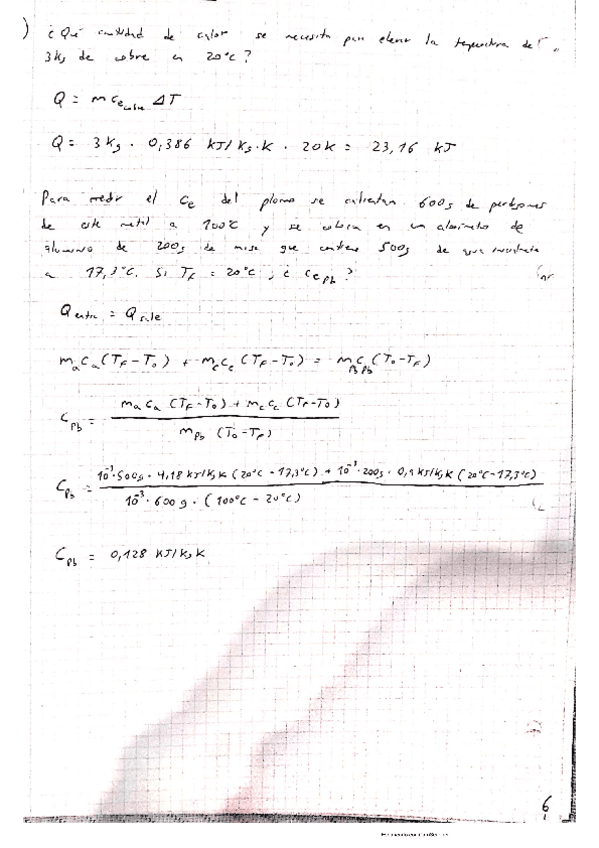 ) ¿Qué cantidad de calor se necesita para elevar la temperatura de
3kg de cobre en 20°C?
Q = m c_e cobre ΔT
Q = 3Kg · 0,386 KJ/Kg·K · 20K = 23,16 KJ
Para medir el c_e del plomo se calientan 600g de perdigones
de este metal a 100°C y se colocan en un calorímetro de
aluminio de 200g de masa que contiene 500g de agua
a 17,3°C. Si T_F = 20°C, ¿c_e pb?
Q entra = Q sale
m_a c_a (T_F - T_0) + m_c c_c (T_F - T_0) = m_pb c_pb (T_0 - T_F)
C_pb = m_a c_a (T_F - T_0) + m_c c_c (T_F - T_0)
m_pb (T_0 - T_F)
C_pb = 10^-3·500g · 4,18 KJ/Kg·K (20°C - 17,3°C) + 10^-3·200g · 0,9 KJ/Kg·K (20°C - 17,3°C)
10^-3 · 600g · (100°C - 20°C)
C_pb = 0,128 KJ/Kg·K
6